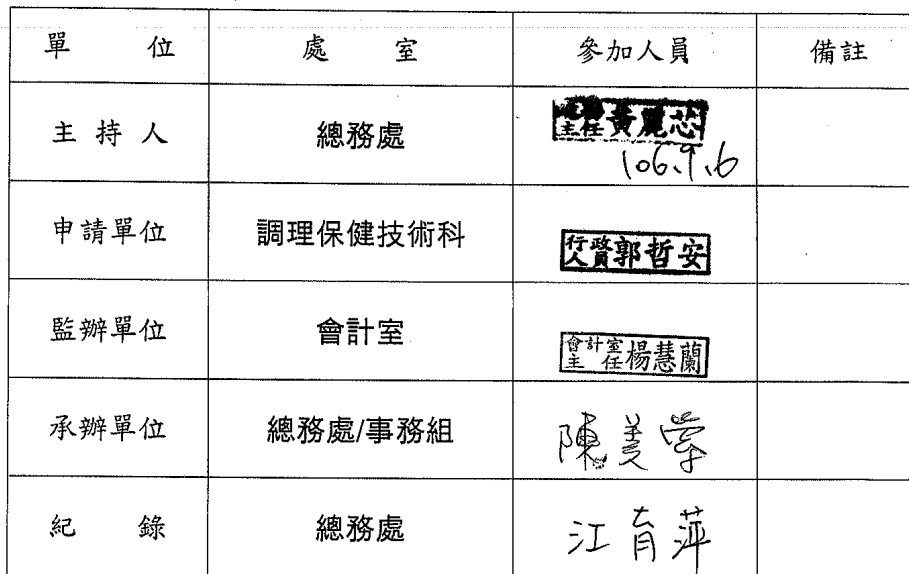 單 位 處 室 參加人員 備註
主 持 人 總務處 總務主任 黃麗芯
106.9.6
申請單位 調理保健技術科 行政人員 郭哲安
監辦單位 會計室 會計室主任 楊慧蘭
承辦單位 總務處/事務組 陳美
紀 錄 總務處 江育萍